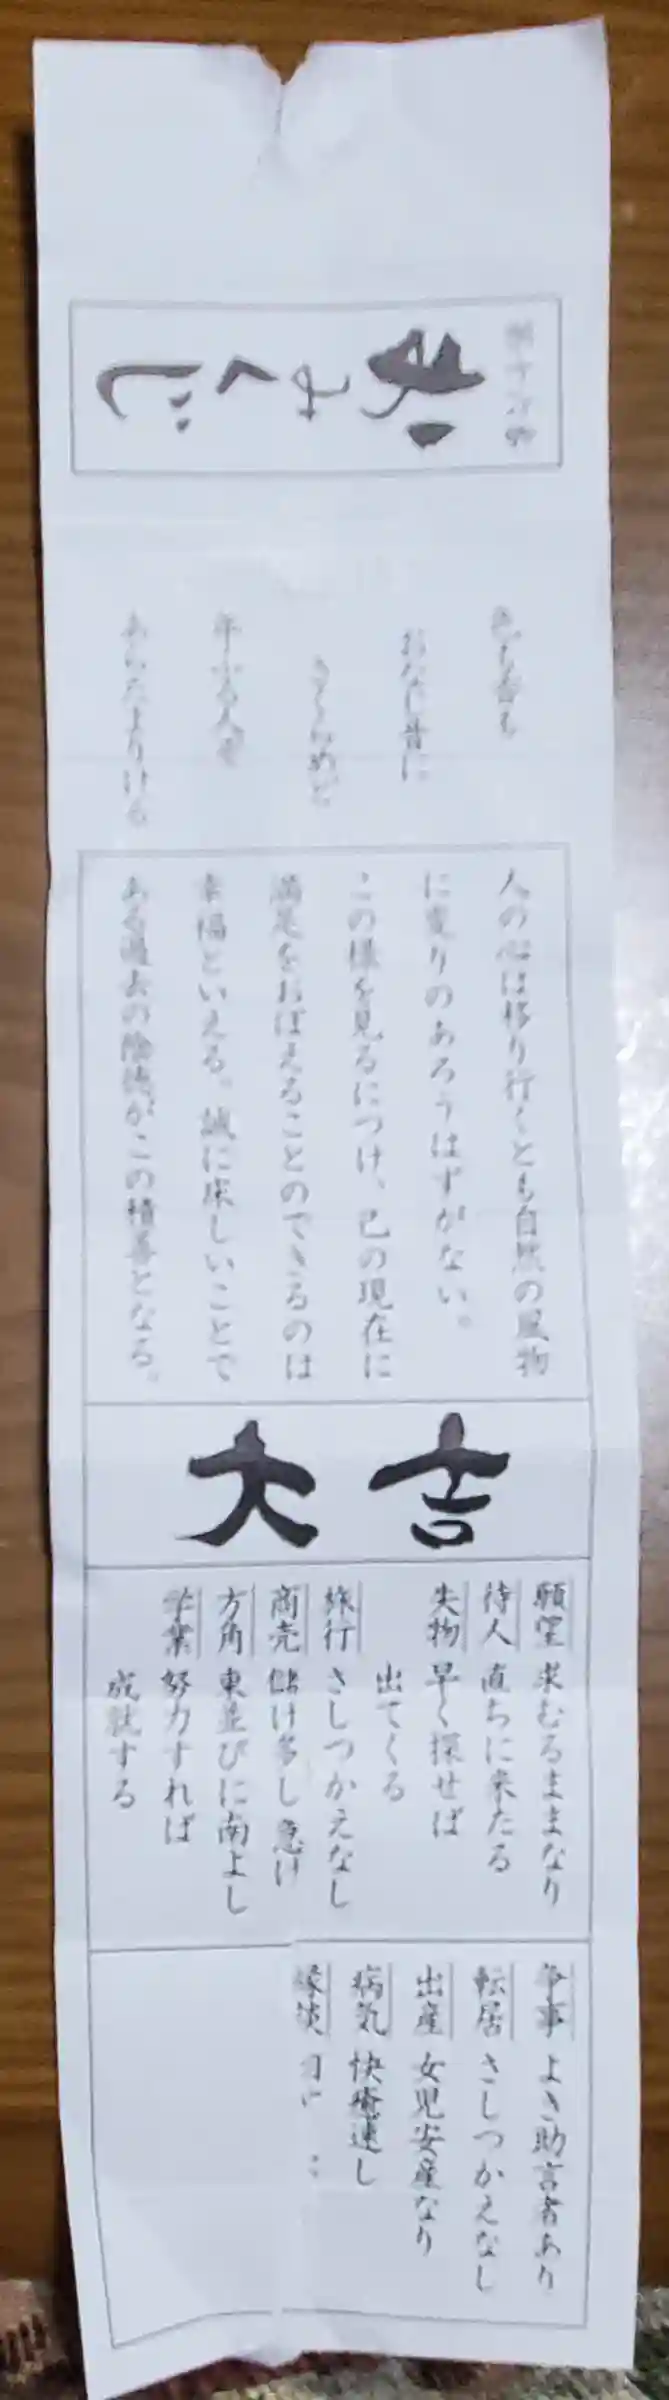 おみくじ
色も香も
おなじ昔に
さくらめど
年ふる人ぞ
あらたまりける
人の心は移り行くとも自然の風物
に変りのあろうはずがない。
この様を見るにつけ、己の現在に
満足をおぼえることのできるのは
幸福といえる。誠に床しいことで
ある過去の陰徳がこの積善となる。
大吉
願望 求むるままなり
待人 直ちに来たる
失物 早く探せば
出てくる
旅行 さしつかえなし
商売 儲け多し 急げ
方角 東並びに南よし
学業 努力すれば
成就する
争事 よき助言者あり
転居 さしつかえなし
出産 女児安産なり
病気 快癒速し
縁談